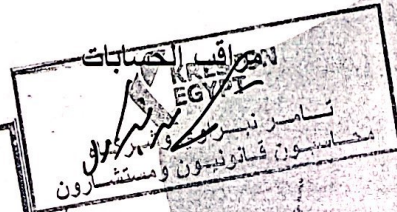 مراقب الحسابات
KRESTON
EGYPT
تامر نبراوي وشركاه
محاسبون قانونيون ومستشارون